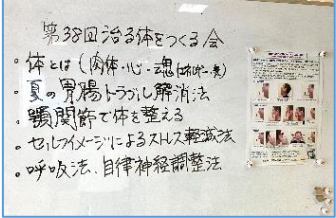 第38回治る体をつくる会
・体とは(肉体・心・魂
・夏の胃腸トラブル解消法
・顎関節で体を整える
・セルフイメージによるストレス軽減法
・呼吸法、自律神経調整法